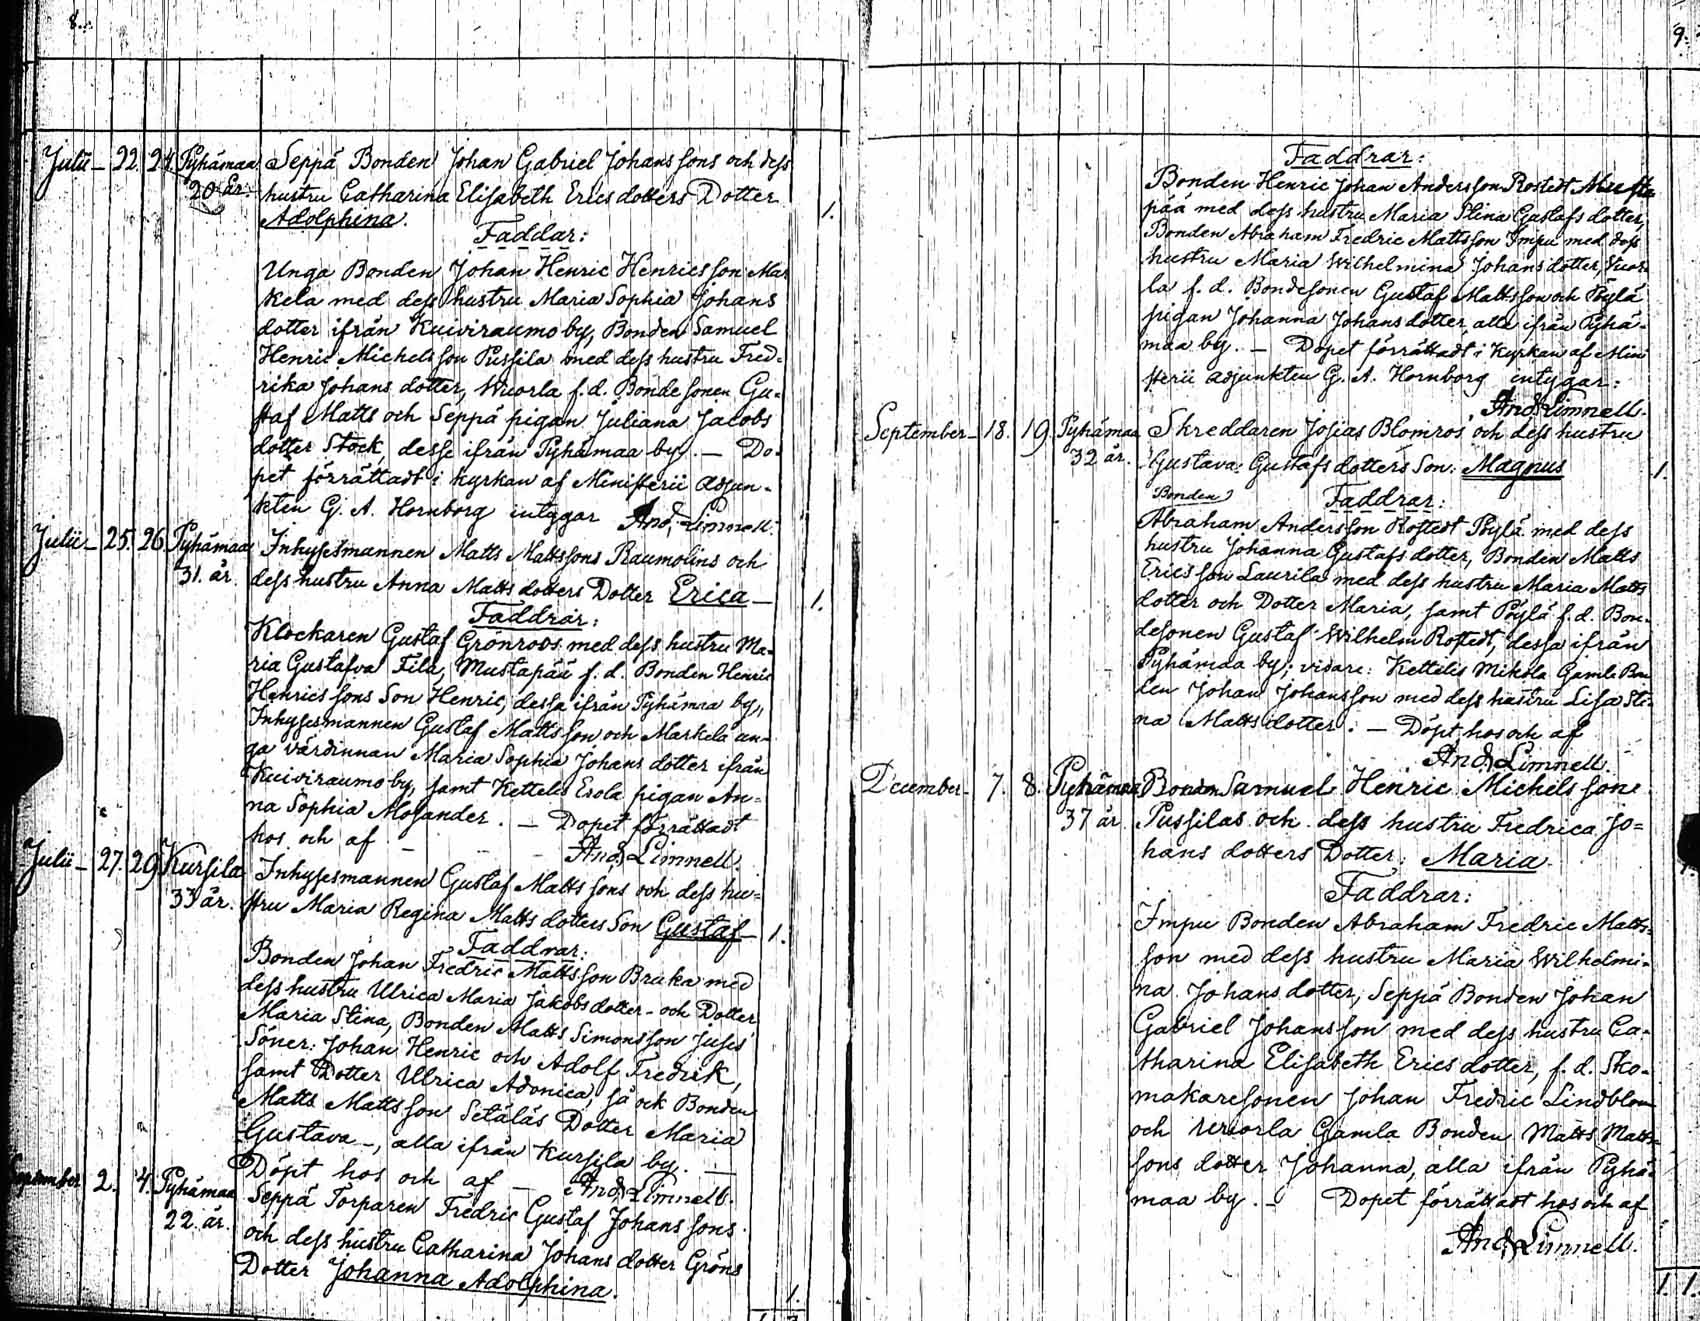 8.
Julii – 22. 24. Pyhämaa Seppä Bonden Johan Gabriel Johanssons och dess
20 år. hustru Catharina Elisabeth Ericsdotters Dotter
Adolphina. 1.
Faddar:
Unga Bonden Johan Henric Henricsson Mar
kela med dess hustru Maria Sophia Johans
dotter ifrån Kuiviraumo by, Bonden Samuel
Henric Michelsson Pussila med dess hustru Fred-
rika Johans dotter, Wuorla f.d. Bondesonen Gu-
staf Matts och Seppä pigan Juliana Jacobs
dotter Stock, desse ifrån Pyhämaa by. – Do-
pet förrättadt i kyrkan af Ministerii adjun-
kten G. A. Hornborg intygar And. Limnell.
Julii – 25. 26. Pyhämaa Inhysesmannen Matts Mattssons Raumolins och
31. år. dess hustru Anna Matts dotters Dotter Erica – 1.
Faddrar:
Klockaren Gustaf Grönroos med dess hustru Ma-
ria Gustafva Fild, Mustapää f.d. Bonden Henric
Henricssons Son Henric, dessa ifrån Pyhämaa by,
Inhysesmannen Gustaf Mattsson och Markela un-
ga värdinnan Maria Sophia Johans dotter ifrån
Kuiviraumo by, samt Kettelis Esola pigan An-
na Sophia Mosander. – Dopet förrättadt
hos och af – – And. Limnell.
Julii – 27. 29 Kursila Inhysesmannen Gustaf Mattssons och dess hu-
33 år. stru Maria Regina Matts dotters Son Gustaf – 1.
Faddrar:
Bonden Johan Fredric Mattsson Bruka med
dess hustru Ulrica Maria Jakobsdotter – och Dotter
Maria Stina, Bonden Matts Simonsson Juses
Söner: Johan Henric och Adolf Fredrik,
samt Dotter Ulrica Adonica, så ock Bonden
Matts Mattsson Setäläs Dotter Maria
Gustava –, alla ifrån Kursila by. –
Döpt hos och af – And. Limnell.
September 2. 4. Pyhämaa Seppä Torparen Fredric Gustaf Johanssons
22. år. och dess hustru Catharina Johans dotter Gröns
Dotter Johanna Adolphina. 1.
9.
Faddrar:
Bonden Henric Johan Andersson Rostedt Musta
pää med dess hustru Maria Stina Gustafs dotter,
Bonden Abraham Fredric Mattsson Impu med dess
hustru Maria Wilhelmina Johans dotter, Wuor
la f.d. Bondesonen Gustaf Mattsson och Pöylä
pigan Johanna Johans dotter, alla ifrån Pyhä-
maa by. – Dopet förrättadt i Kyrkan af Mini
sterii adjunkten G. A. Hornborg intygar:
And. Limnell.
September – 18. 19. Pyhämaa Skreddaren Josias Blomros och dess hustru
32 år. Gustava Gustafs dotters Son: Magnus 1.
Bonden Faddrar:
Abraham Andersson Rostedt Pöylä med dess
hustru Johanna Gustafs dotter, Bonden Matts
Ericsson Laurila med dess hustru Maria Matts
dotter och Dotter Maria, samt Pöylä f.d. Bon-
desonen Gustaf Wilhelm Rostedt, dessa ifrån
Pyhämaa by; vidare: Kettelis Mikola Gamle Bon
den Johan Johansson med dess hustru Lisa Sti-
na Mattsdotter. – Döpt hos och af
And. Limnell.
December – 7. 8. Pyhämaa Bonden Samuel Henric Michelssons
37 år Pussilas och dess hustru Fredrica Jo-
hans dotters Dotter: Maria.
Faddrar:
Impu Bonden Abraham Fredric Matts-
son med dess hustru Maria Wilhelmi-
na Johans dotter, Seppä Bonden Johan
Gabriel Johansson med dess hustru Ca-
tharina Elisabeth Erics dotter, f.d. Sko-
makaresonen Johan Fredric Lindblom
och Wuorla Gamla Bonden Matts Matts-
sons dotter Johanna, alla ifrån Pyhä-
maa by. – Dopet förrättadt hos och af
And. Limnell.
1. 1.